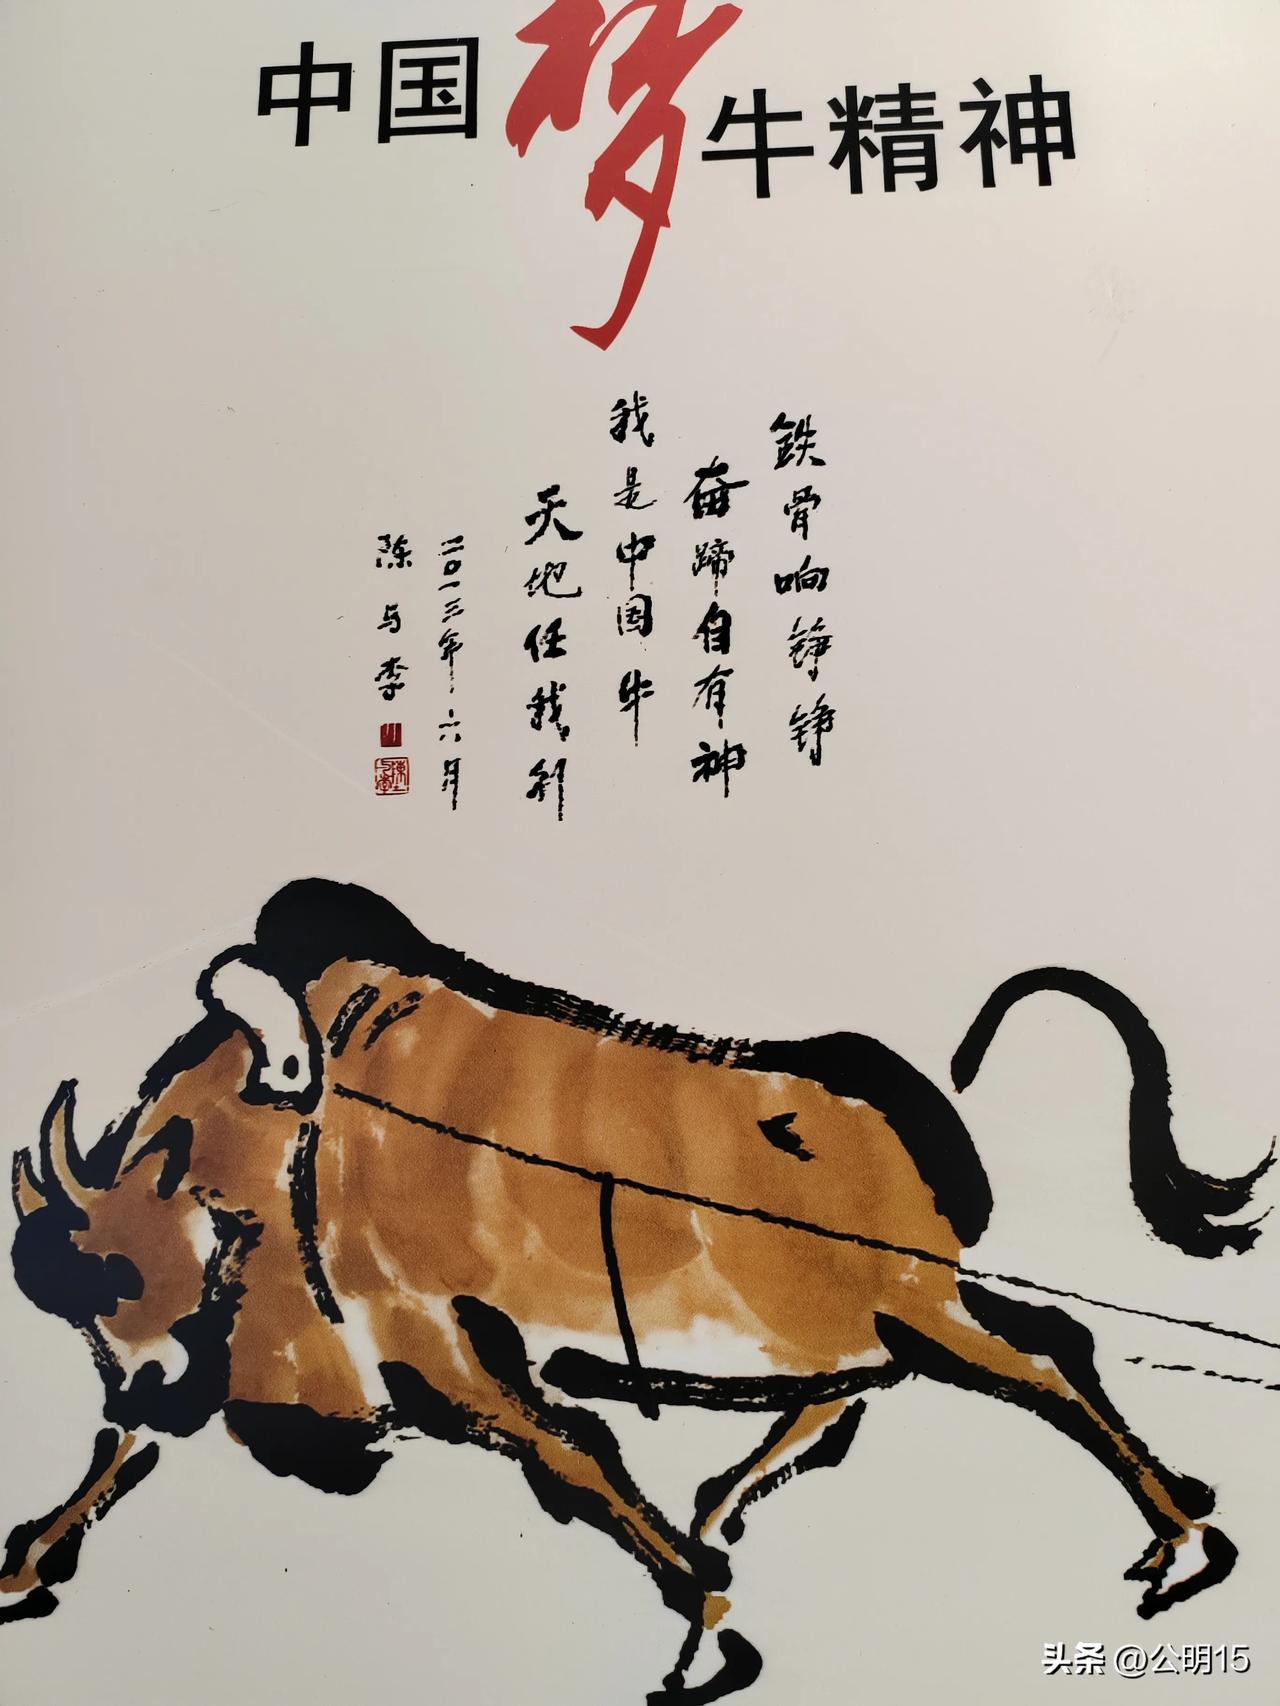 中国梦牛精神
鉄骨响铮铮
奋蹄自有神
我是中国牛
天地任我犁
二〇一三年六月
陈与李
头条 @公明15